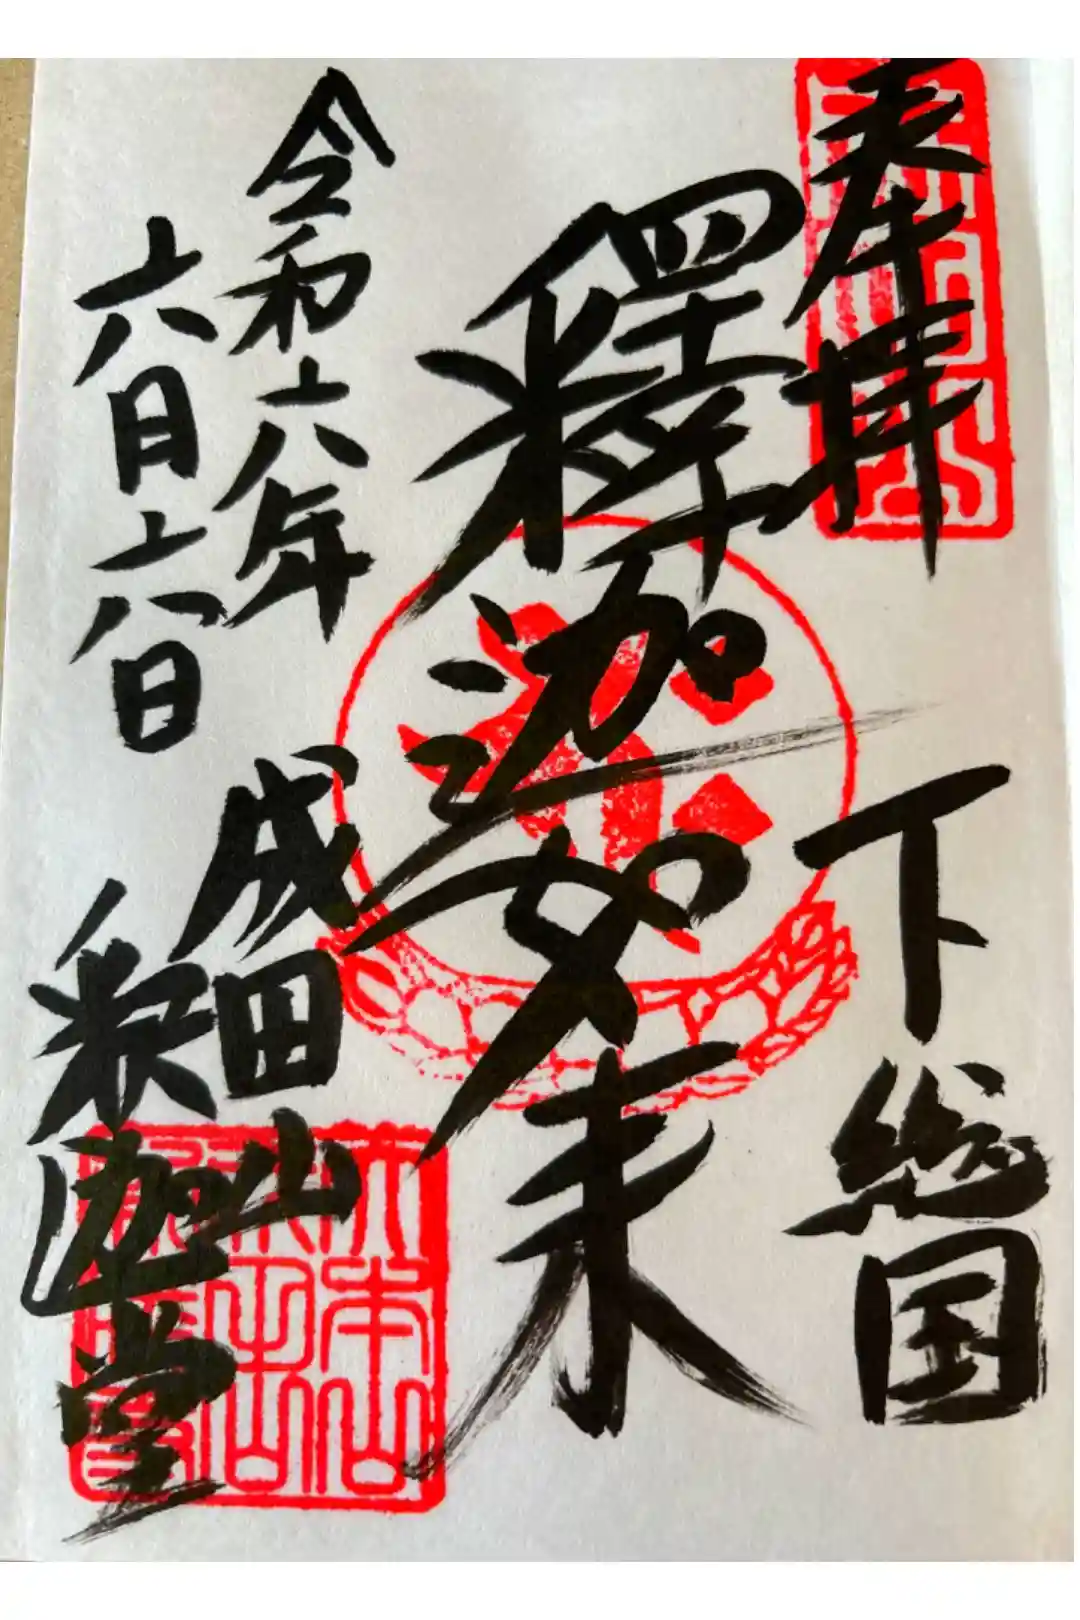 奉拝
下総国
釋迦如来
令和六年
六月六日
成田山
釈迦堂